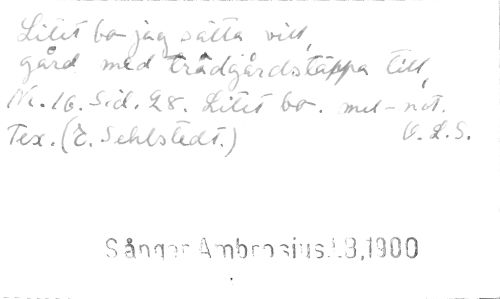 Litet bo jag sätta vill,
gård med trädgårdstäppa till,
Nr. 16. Sid. 28. Litet bo. mel-not.
Tex. (E. Sehlstedt.) G. L. S.
Sånger Ambrosius 1.3,1900